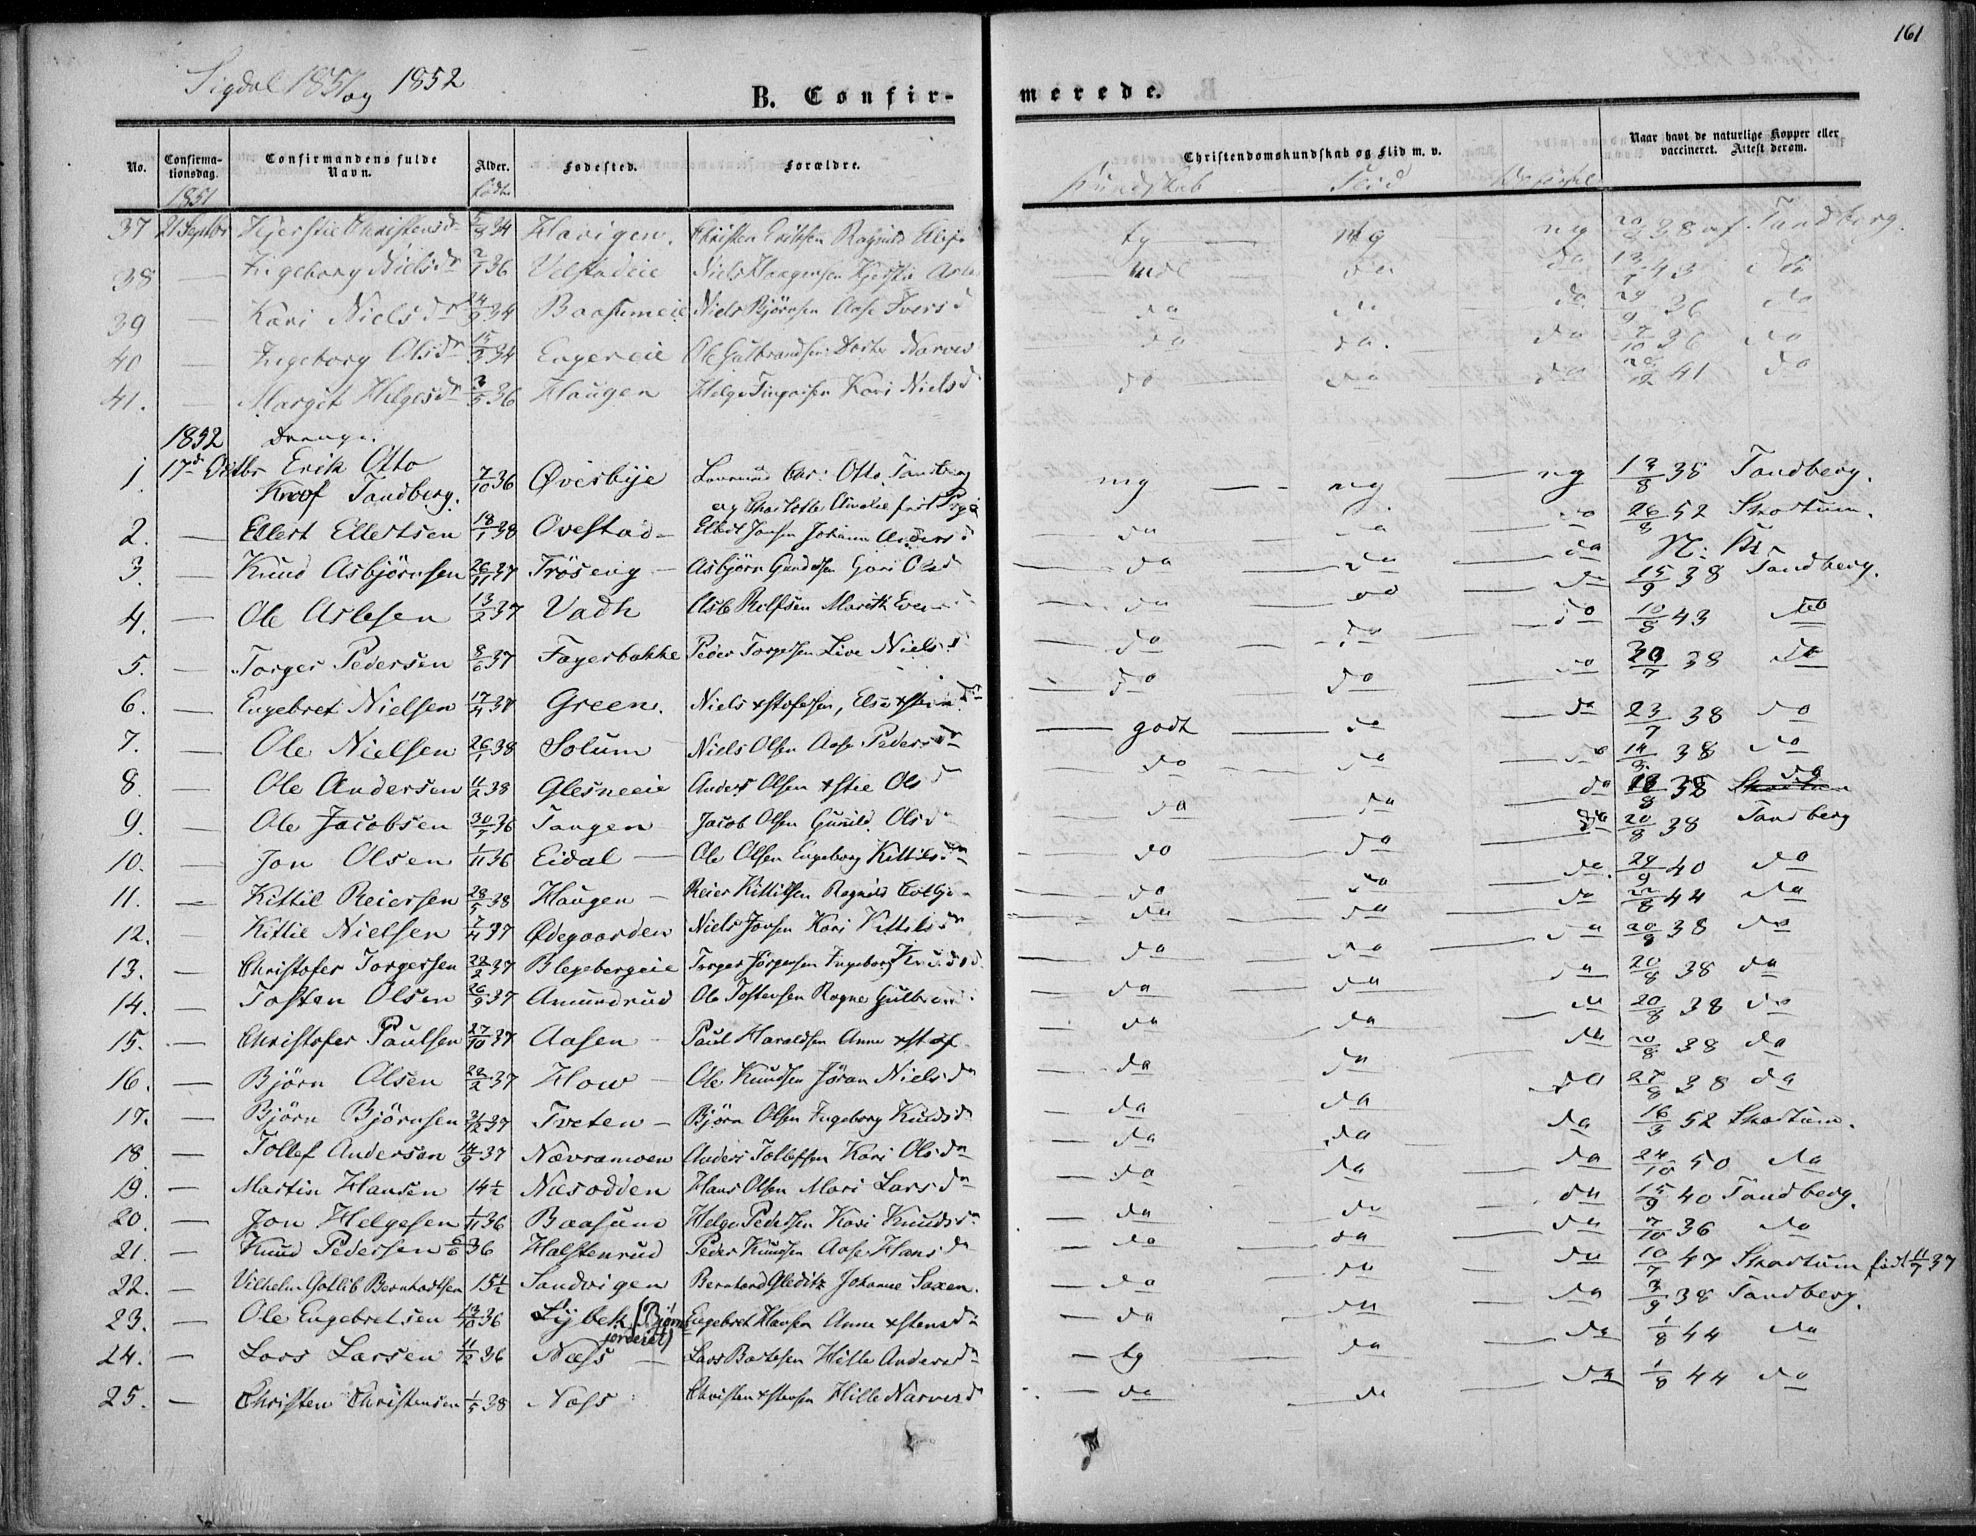 161
Sigdal 1851 og 1852
B. Confir-
merede.
No. Confirma-tionsdag. Confirmandens fulde Navn. Alder. Fødested. Forældre. Christendomskundskab og Flid m. v. Naar havt de naturlige Kopper eller vaccineret. Attest derom.
1851 født Kundskab Flid
37 21 Septbr Kjerstie Christensdr 34 Havigen. Christen Eriksen Ragnild tg mg mg 20/8 38 af Tandberg.
38 — Ingeborg Nielsdr 2/1 36 Velstadeie Niels Haagensen Kjerstie mdl do do 13/7 43 do
39 — Kari Nielsdr 14/9 34 Baasumeie Niels Björnsen Aase Iversd do do do 29/9 36 do
40 — Ingeborg Olsdr 34 Engereie Ole Gulbrandsen Dorthe Narves do do. do 7/10 36 do
41. — Margit Helgesdr 36 Haugen Helge Kari Nielsd do do do 41 do
1852 Drenge.
1. 17d Octbr Erik Otto
Knoof Tandberg. 7/10 36 Øverbye Otto Tandberg
og Charlotte Amalie mg — mg — mg 38 Tandberg.
2. — Ellert Ellertsen 18/1 38 Ovestad Ellert Jansen Johanne Andersd do do do 26/8 52 Skartum.
3. — Knud Asbjörnsen 37 Tröseng — Asbjörn Gundersen Guri Olsd do do do
4. — Ole Aslesen 13/2 37 Vadh Asle Rolfsen Marith do do do 15/9 38 Tandberg.
5. — Torger Pedersen 8/6 37 Fagerbakke Peder Torgersen Live Nielsd do do do 10/8 43 do
6. — Engebret Nielsen 17/4 37 Green. Niels Xstofersen, Else do do do 20/7 38 do
7. — Ole Nielsen 26/1 38 Solum Niels Olsen Aase Pedersdr godt do do 23/7 38 do
8. — Ole Andersen 11/2 38 Glesneeie Anders Olsen Xstie Olsd do do do 14/9 38 do
9. — Ole Jacobsen 30/7 36 Tangen Jacob Olsen Gunild Olsd do do do 18/8 38 do
10. — Jon Olsen 1/11 36 Eidal — Ole Olsen Engeborg Kittilsdr do do do 20/8 38 Tandberg
11. — Kittil Reiersen 28/5 38 Haugen — Reier Kittilsen Ragnild do do do. 29/9 40 do
12. — Kittil Nielsen 7/4 37 Ødegaarden Niels Jonsen Kari Kittilsdr do do do 22/8 44 do
13. — Christofer Torgersen 22/2 37 Blegebergeie Torger Jörgensen Ingeborg Knudsd. do do do 20/8 38 do
14. — Tosten Olsen 26/9 37 Amundrud Ole Tostensen Ragne Gulbrand do do do 20/8 38 do
15. — Christofer Paulsen 27/10 37 Aasen Paul Haraldsen Anne Xstof do do do 20/8 38 do
16. — Björn Olsen 22/2 37 How — Ole Knudsen Jöran Nielsdr do do do 20/8 38 do
17. — Björn Björnsen 37 Tveten — Björn Olsen Ingeborg Knudsdr do do do 27/8 38 do
18 — Tollef Andersen 14/9 37 Nævramoen Anders Tollefsen Kari Olsdr do do do 16/3 52 Skartum.
19. — Martin Hansen 14½ Næsodden Hans Olsen Mari Larsdr do do do 24/10 50 do
20. — Jon Helgesen 1/11 36 Baasum Helge Pedersen Kari Knudsdr do do do 15/9 40 Tandberg.
21. — Knud Pedersen 6/6 36 Halstenrud Peder Knudsen Aase Hansdr do do do 7/10 36 do
22. — Vilhelm Gotlib Bernhardtsen 15½ Sandvigen Bernhard Gleditz Johanne Saxen. do do do 10/7 47 Skartum født 11/7 37
23. — Ole Engebretsen 13/10 36 Lybek (Björn-
jordeiet) Engebret Hansen Anne Xstensdr do do do 3/9 38 Tandberg.
24. — Lars Larsen 11/12 36 Næss — Lars Bartesen Hille Andersdr tg do do 1/8 44 do
25. — Christen Christensen 1/5 38 Næss Christen Xstensen Hille Narvesd do do do 1/8 44 do